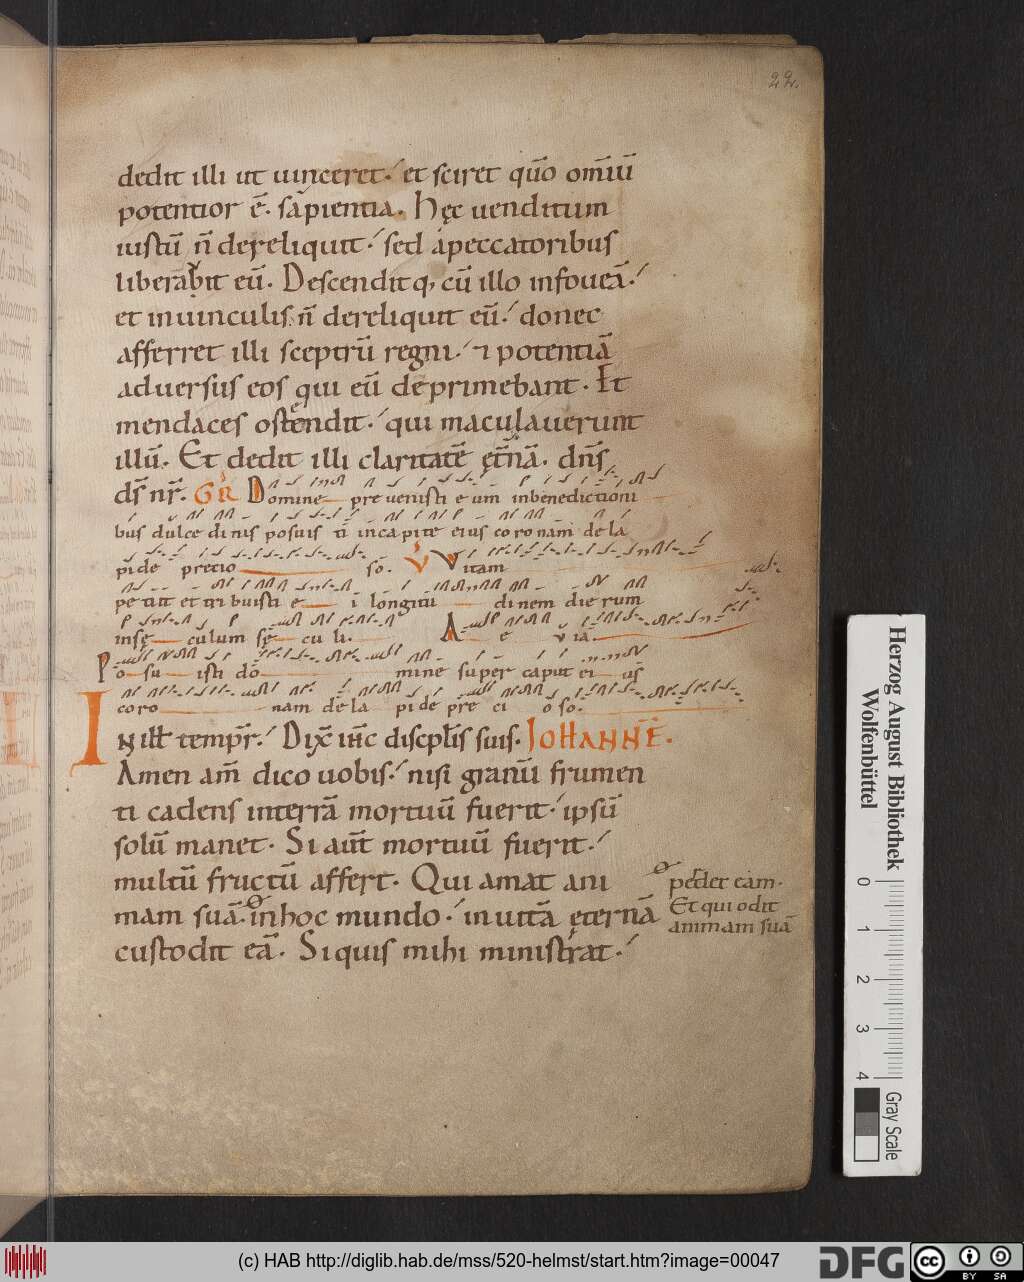 22.
dedit illi ut uinceret. et sciret qm̄o omīū
potentior ē. sapientia. Hęc uenditum
iustū n̄ dereliquit. sed apeccatoribus
liberabit eū. Descenditq, cū illo infoueā.
et inuinculis n̄ dereliquit eū. donec
afferret illi sceptrū regni. ⁊ potentiā
aduersus eos qui eū deprimebant. Et
mendaces ostendit. qui maculauerunt
illū. Et dedit illi claritatē ęt̄nā. dn̄s
ds̄ nr̄. GR̄ Domine preuenisti eum inbenedictioni
bus dulcedinis posuis ti incapite eius coronam̄ dela
pide precio so. V Vitam
petiit et tribuisti e i longitu dinem dierum
insę culum sę culi. A e via.
Posu isti dō mine super caput ei us̄
coro nam dela pide pre ci oso.
In ill̄ tempr̄. Dix̄ ih̄c discpl̄is suis. IOHANNĒ.
Amen am̄ dico uobis. nisi granū frumen
ti cadens interrā mortuū fuerit. ipsū
solū manet. Si aūt mortuū fuerit.
multū fructū affert. Qui amat ani
mam suā. inhoc mundo. inuitā ęternā
custodit eā. Siquis mihi ministrat.
perdet eam.
Et qui odit
animam suā
Herzog August Bibliothek
Wolfenbüttel
0 1 2 3 4
Gray Scale
(c) HAB http://diglib.hab.de/mss/520-helmst/start.htm?image=00047
DFG
cc BY SA